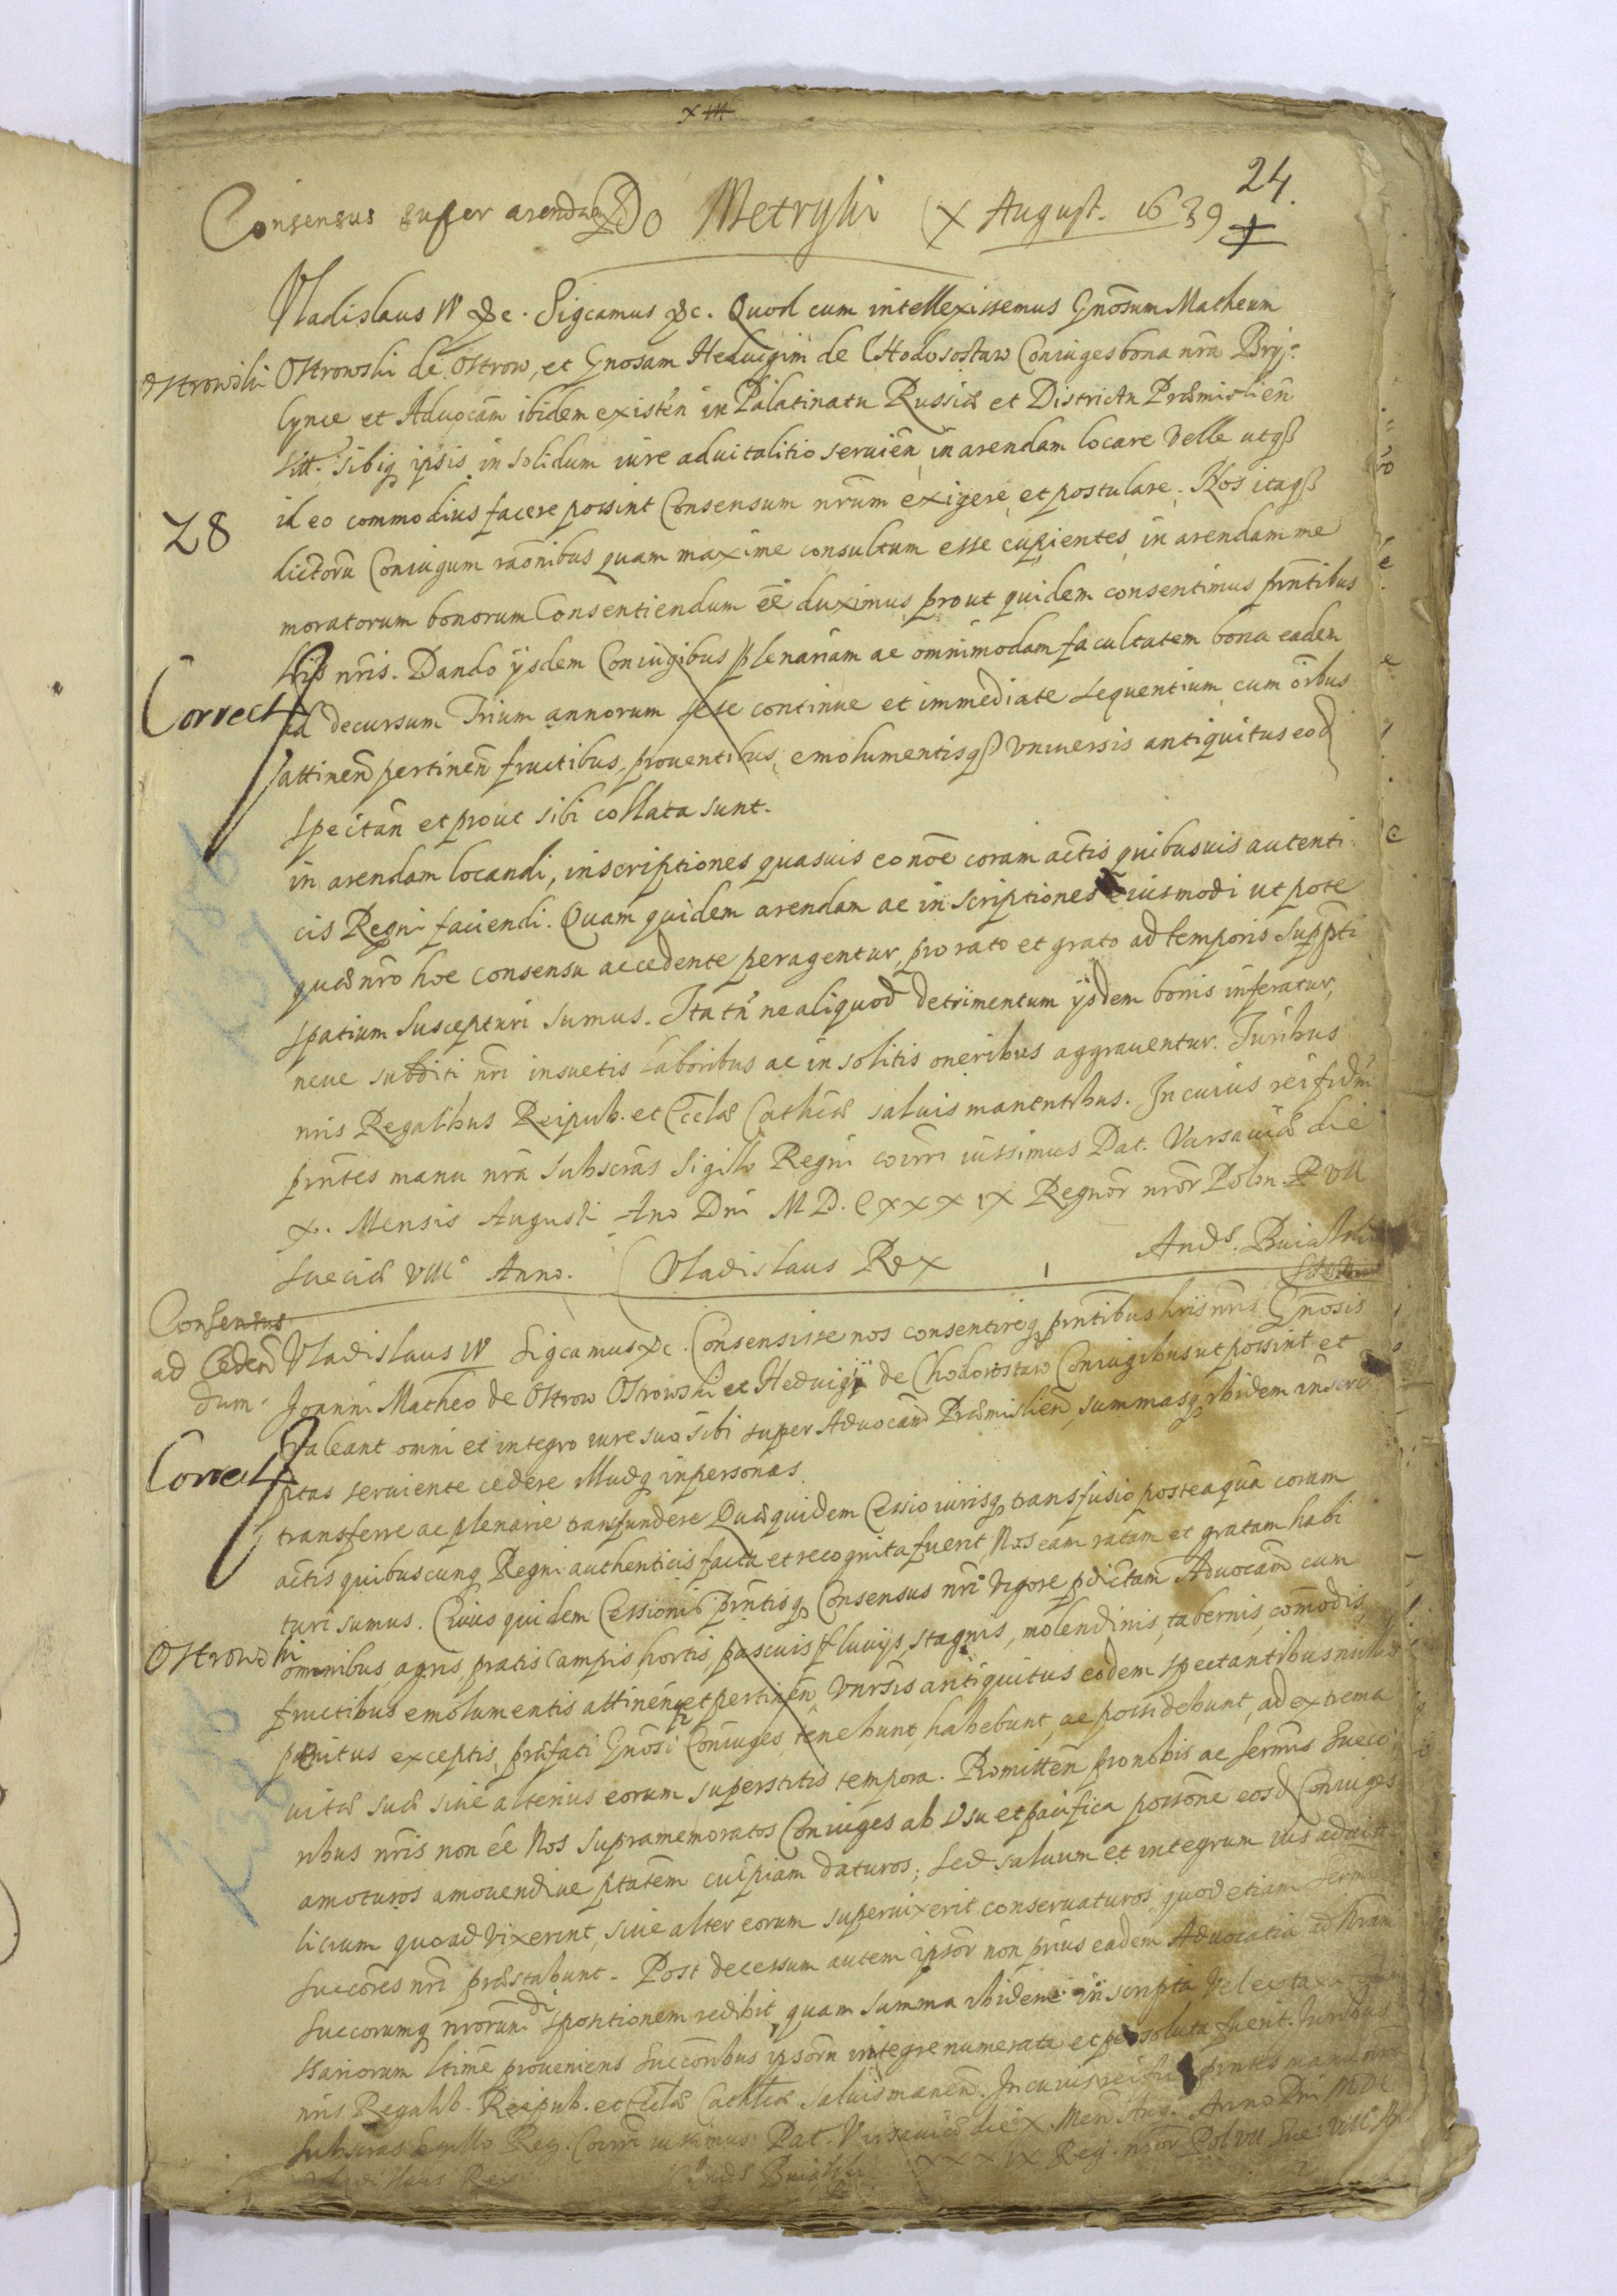 X m
24.
Consensus super arendam Do Metryki (X August. 1639
Vladislaus IV &c. Sigcamus &c. Quod cum intellexissemus Gnosum Matheum
Ostrowski Ostrowski de Ostrow, et Gnosam Heduigim de CHodorostaw Coniuges bona nra Bry=
lynce et Aduocam ibidem existen in Palatinatu Russiæ et Districtu Præmislien
sitt. sibiq ipsis in solidum iure aduitalitio seruien in arendam locare velle utqß
28
id eo commodius facere possint Consensum nrum exigere et postulare. Nos itaqß
dictoru Coniugum raonibus quam maxime consultum esse cupientes in arendam me
moratorum bonorum Consentiendum ee duximus prout quidem consentimus pntibus
Lris nris. Dando ijsdem Coniugibus plenariam ac omnimodam facultatem bona eadem
Correct
ad decursum Trium annorum sese continue et immediate sequentium cum oibus
attinen pertinen fructibus, prouentibus, emolumentisqß vniuersis antiquitus eod
spectan et prout sibi collata sunt.
in arendam locandi, inscriptiones quasuis eo noe coram actis quibusuis autenti
cis Regni faciendi. Quam quidem arendam ac inscriptiones eiusmodi ut pote
quæ nro hoc consensu accedente peragentur, pro rato et grato ad temporis suppti
spatium suscepturi sumus. Ita tn ne aliquod detrimentum ijsdem bonis inferatur,
neue subditi nri insuetis laboribus ac insolitis oneribus aggrauentur. Juribus
nris Regalibus Reipub. et Eccliæ Cathcæ saluis manentibus. In cuius rei fidm
pntes manu nra subscras Sigillo Regni coirri iussimus Dat. Varsauiæ die
X. Mensis Augusti Ano Dni M D. C XXX IX Regnor nror Polon. VII
Sueciæ VIII° Anno. Vladislaus Rex Ands.
Consensus
ad Ceden
dum.
Vladislaus IV Sigcamus &c. Consensisse nos consentireq pntibus lris nris Gnosis
Joanni Matheo de Ostrow Ostrowski et Heduigi de Chodorostaw Coniugibus ut possint et
valeant omni et integro iure suo sibi super Aduocam Præmislien, summasq ibidem inscri
Correct
ptas seruiente cedere illudq in personas
transferre ac plenarie transfundere Quæquidem Cessio iurisq transfusio posteaqua coram
actis quibuscunq Regni authenticis facta et recognita fuerit, Nos eam ratam et gratam habi
turi sumus. Cuius quidem Cessionis pntisq Consensus nri vigore pdictam Aduocam cum
Ostrowski
omnibus, agris, pratis campis, hortis, pascuis fluuijs, stagnis, molendinis, tabernis, comodis,
fructibus emolumentis attinen et pertinen, vnrsis antiquitus eodem spectantibus nullis
penitus exceptis, præfati Gnosi Coniuges tenebunt, habebunt, ac possidebunt, ad extrema
uitæ suæ siue alterius eorum superstitis tempora. Promitten pro nobis ac sermis Succo
ribus nris non ee Nos supramemoratos Coniuges ab vsu et pacifica possone eosd Coniuges
amoturos amouendiue ptatem cuipiam daturos; sed saluum et integrum ius aduita
licium quoad vixerint, siue alter eorum superuixerit conseruaturos, quod etiam sermi
Succores nri præstabunt. Post decessum autem ipsor non prius eadem Aduocatia ad nram
Succorumq nrorum dispositionem redibit, quam summa ibidem inscripta vel ex
ssariorum ltime proueniens Succoribus ipsoru integre numerata et persoluta fuerit. Juribus
nris Regalib. Reipub. et Eccliæ Cathcæ saluis manen. In cuius rei pntes manu nra
subscras Sigillo Reg. Coirri iussimus Dat. Varsauiæ die X Men Aug. Anno Dni MDC
XXXIX Reg. nror Pol VII Sue: VIII
Vladislaus Rex